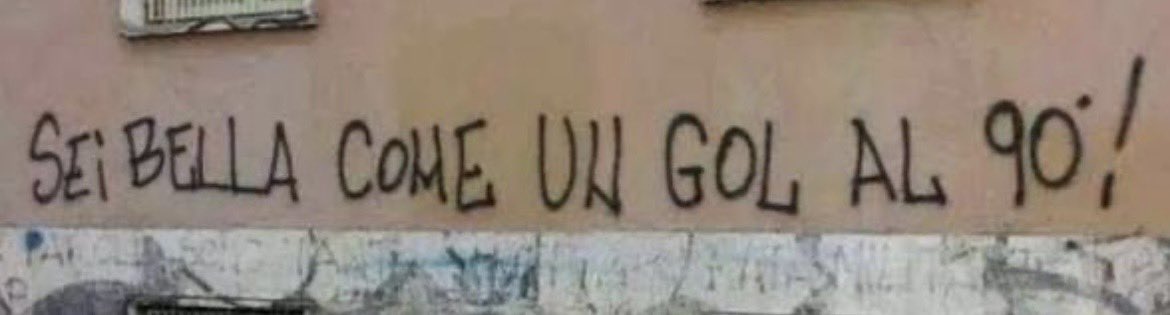 SEi BELLA COME UN GOL AL 90°!